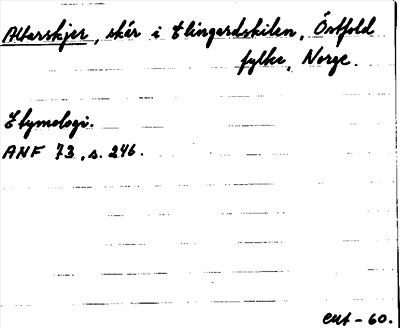 Altarskjer, skär i Elingårdskilen, Östfold
fylke, Norge.
Etymologi.
ANF 73, s. 246.
EUA - 60.